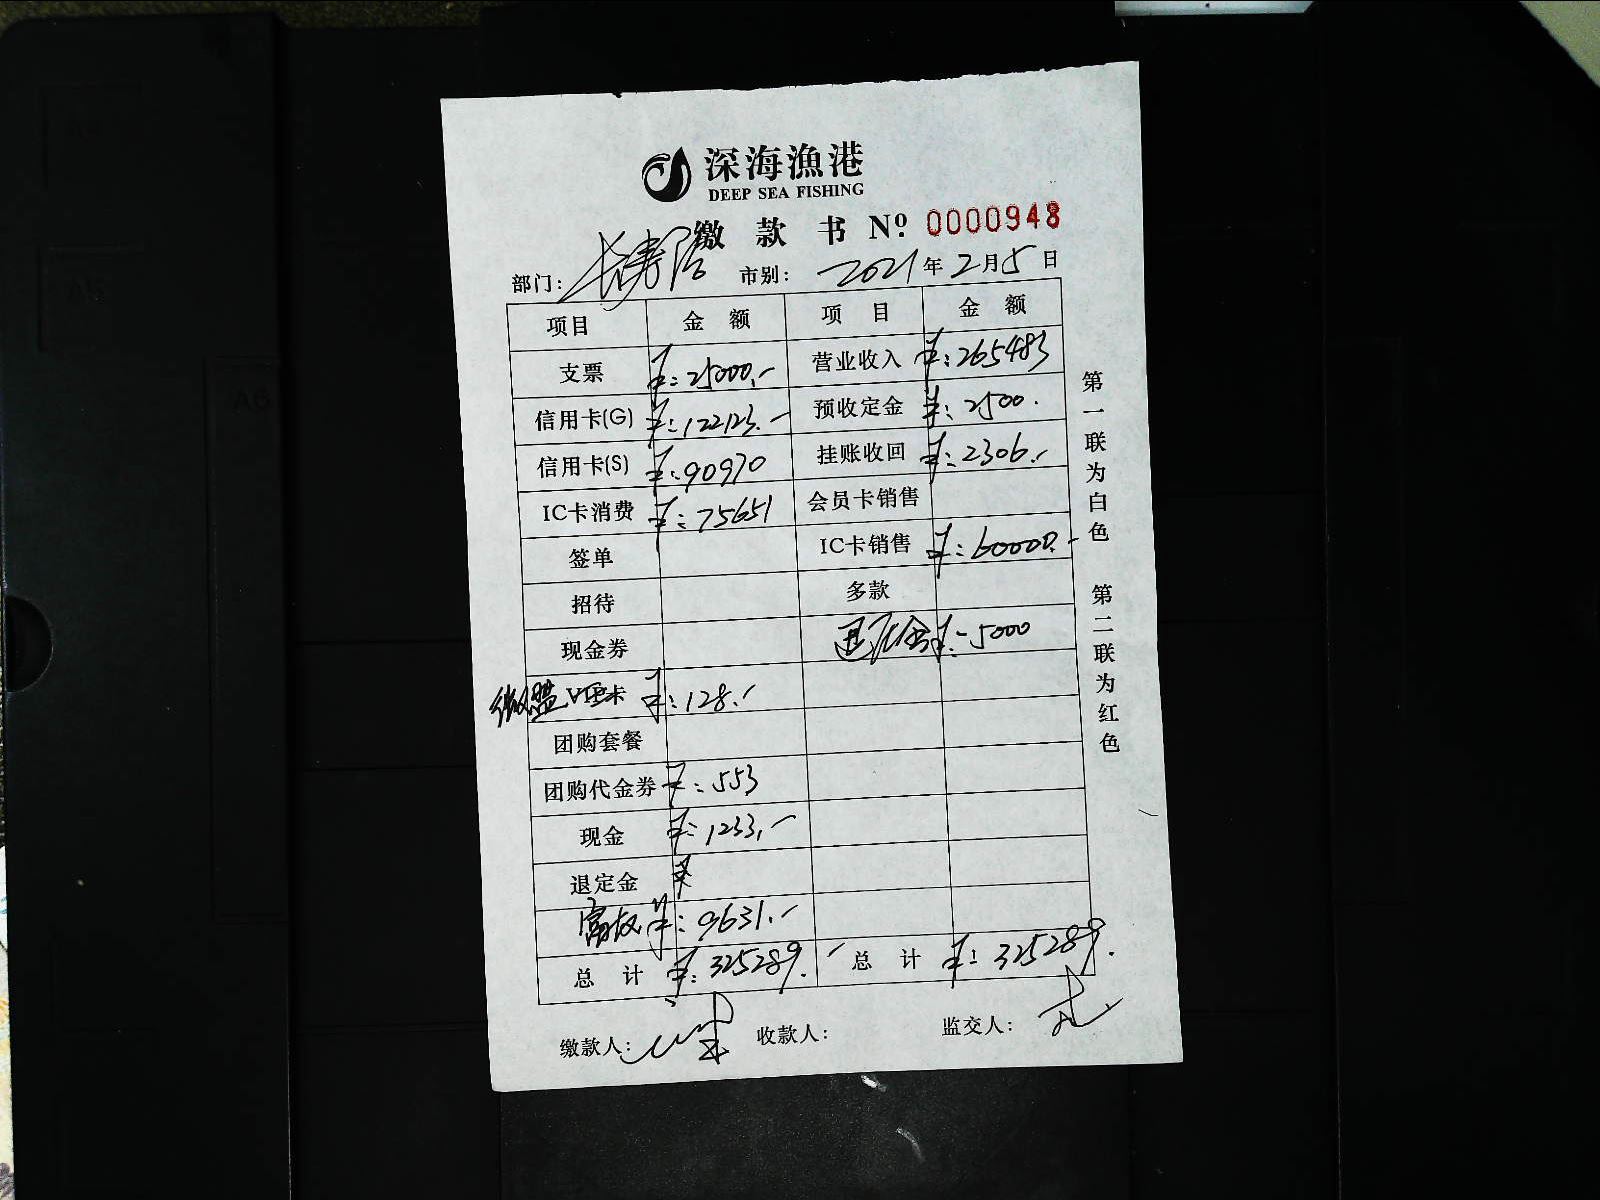 深海漁港
DEEP SEA FISHING
缴款书 Nº 0000948
部门: 长寿路 市别: 2021年2月5日
项目 金额 项目 金额
支票 ¥:25000.- 营业收入 ¥:265483
信用卡(G) ¥:122123.- 预收定金 ¥:2500.
信用卡(S) ¥:90970 挂账收回 ¥:2306.-
IC卡消费 ¥:75651 会员卡销售
签单 IC卡销售 ¥:60000.-
招待 多款
现金券 退定金 ¥:-5000
微盟 卡 ¥:128.-
团购套餐
团购代金券 ¥:553
现金 ¥:1233.-
退定金 ¥
¥:9631.-
总计 ¥:325289.- 总计 ¥:325289.
缴款人: 收款人: 监交人:
第一联为白色 第二联为红色